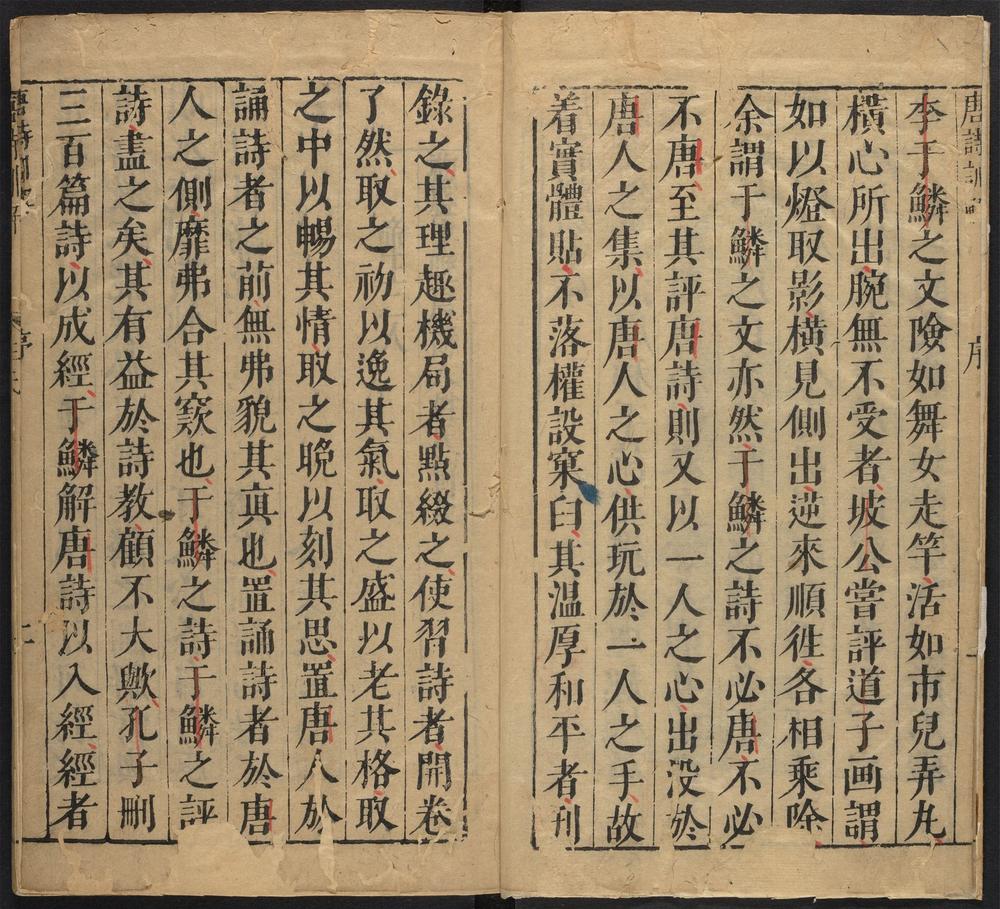 唐詩訓
序
李于鱗之文險如舞女走竿活如市兒弄丸
橫心所出腕無不受者坡公嘗評道子画謂
如以燈取影橫見側出逆來順徃各相乘除
余謂于鱗之文亦然于鱗之詩不必唐不必
不唐至其評唐詩則又以一人之心出没於
唐人之集以唐人之心供玩於一人之手故
着實體貼不落權設窠臼其温厚和平者刋
錄之其理趣機局者點綴之使習詩者開卷
了然取之初以逸其氣取之盛以老其格取
之中以暢其情取之晚以刻其思置唐人於
誦詩者之前無弗貌其真也置誦詩者於唐
人之側靡弗合其窾也于鱗之詩于鱗之評
詩盡之矣其有益於詩教顧不大歟孔子刪
三百篇詩以成經于鱗解唐詩以入經經者
詩訓
序
二